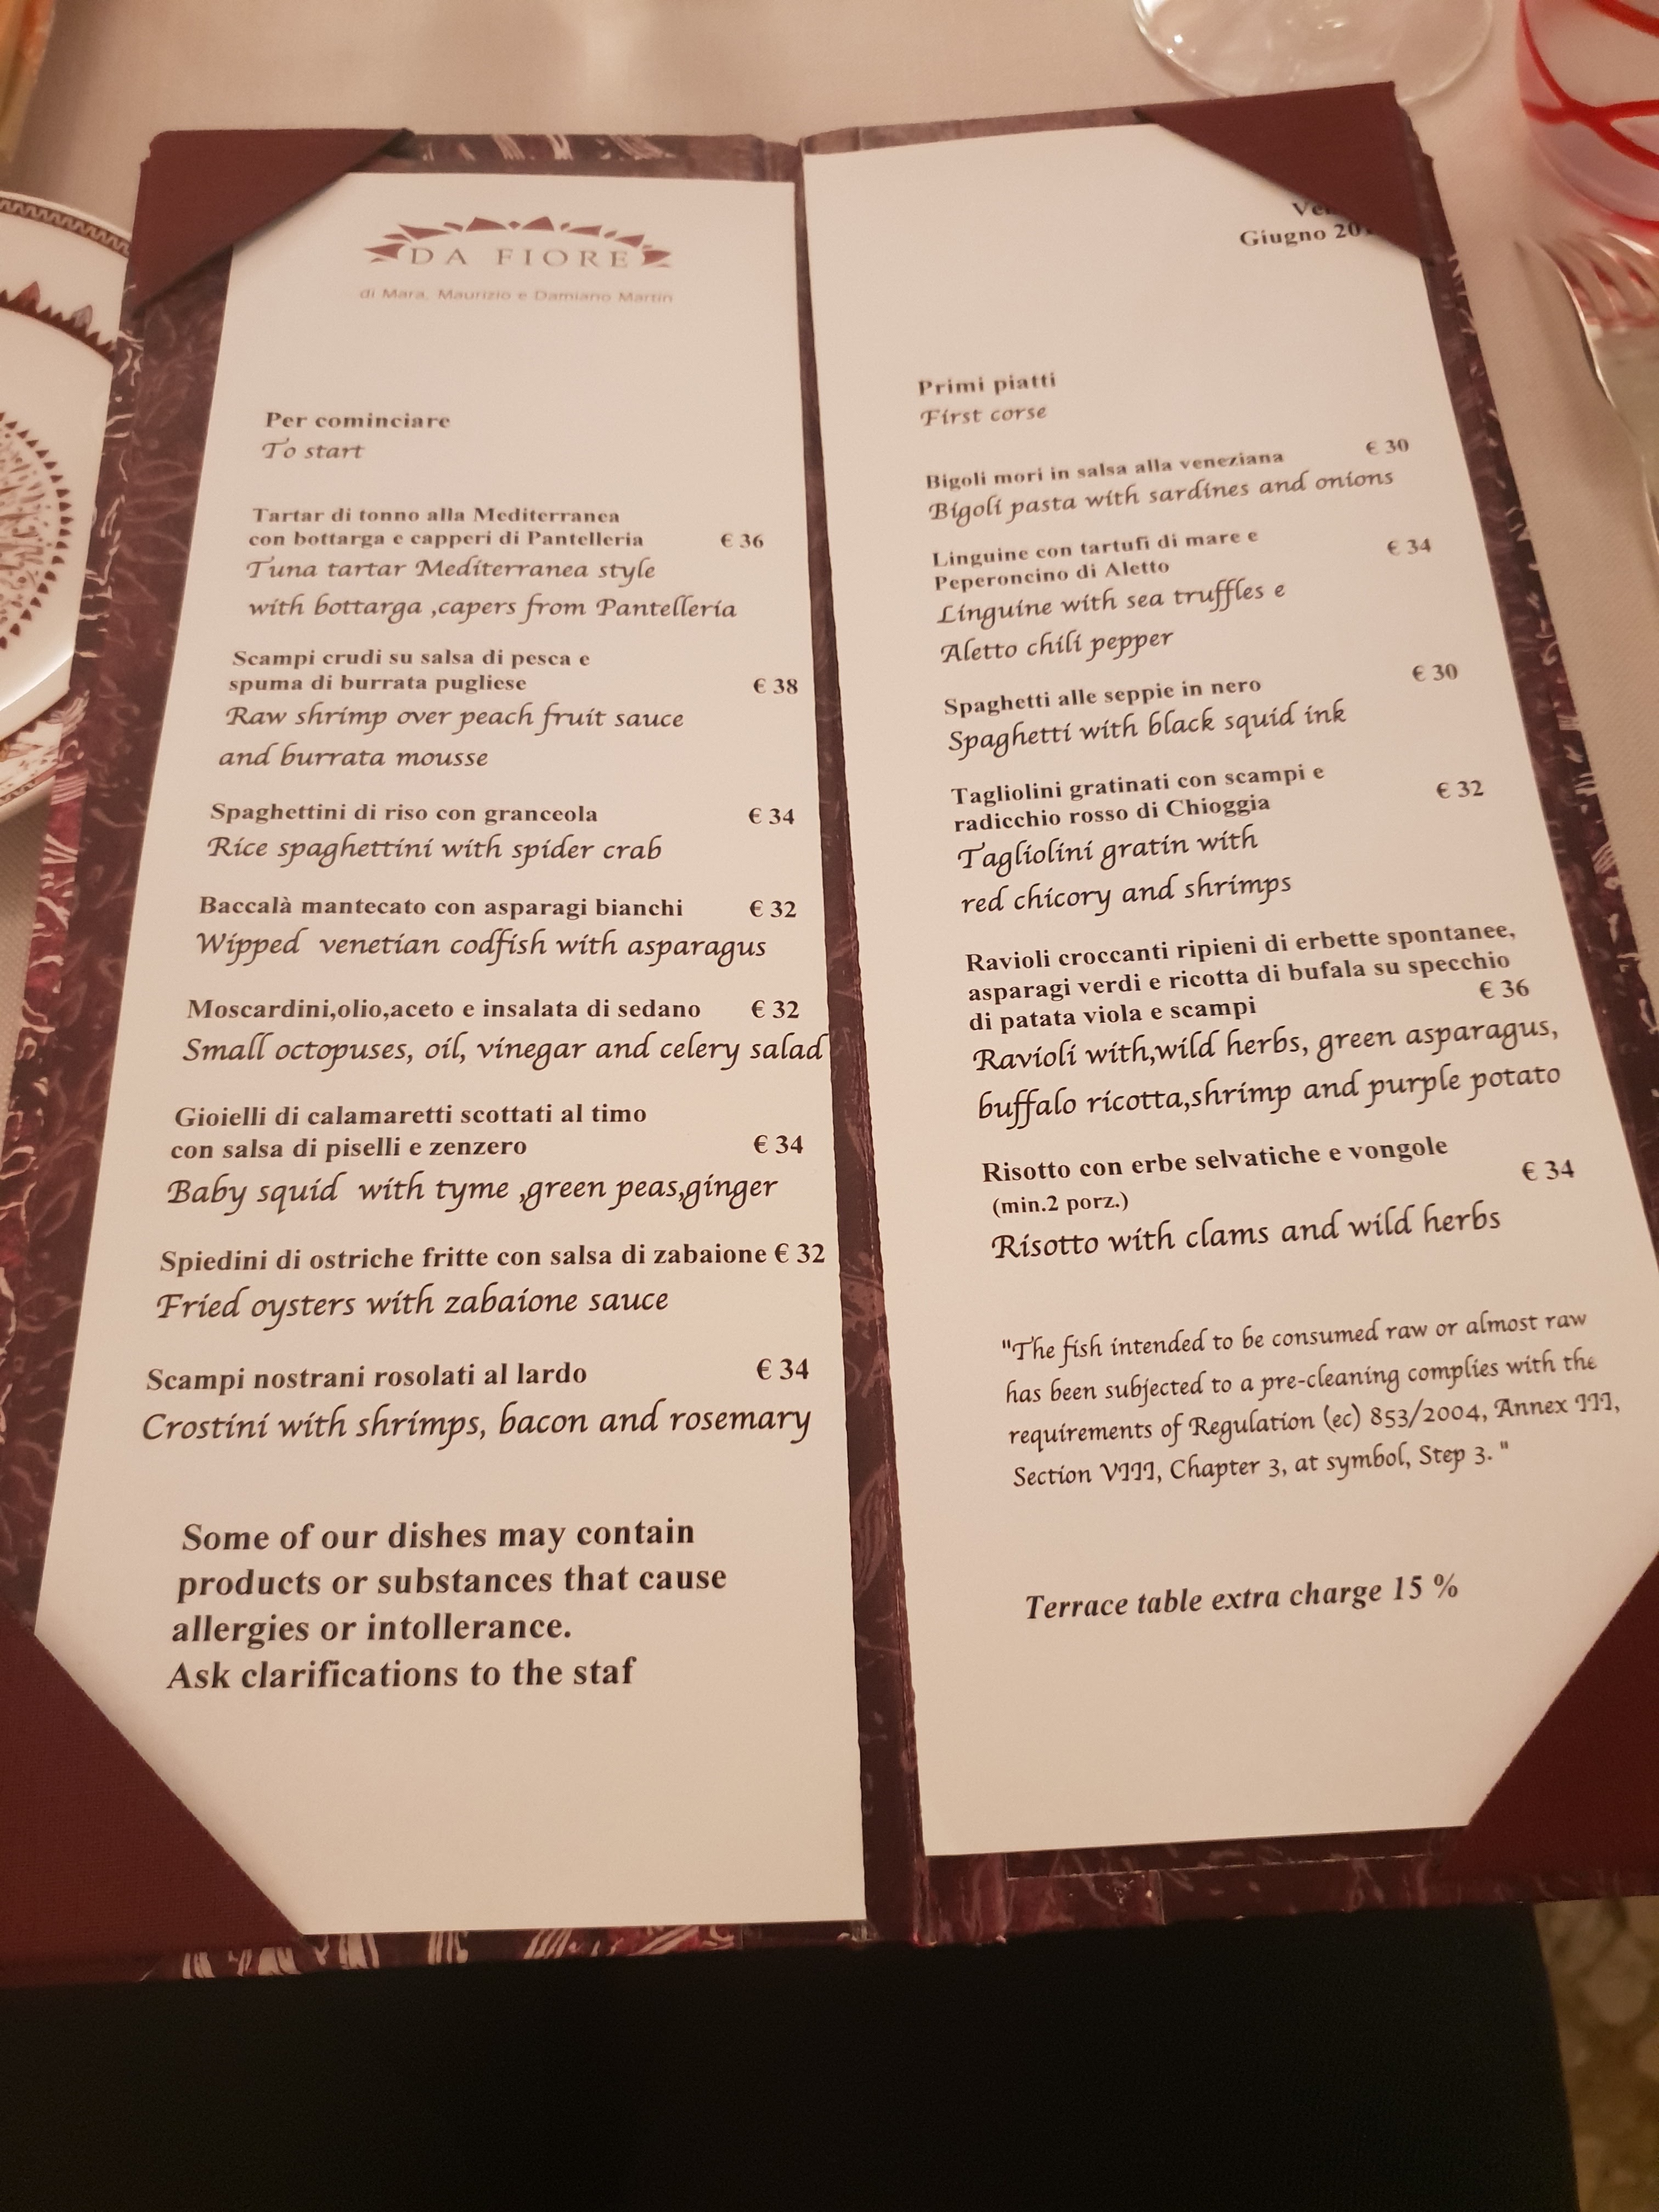 DA FIORE
di Mara, Maurizio e Damiano Martin
Per cominciare
To start
Tartar di tonno alla Mediterranea
con bottarga e capperi di Pantelleria € 36
Tuna tartar Mediterranea style
with bottarga ,capers from Pantelleria
Scampi crudi su salsa di pesca e
spuma di burrata pugliese € 38
Raw shrimp over peach fruit sauce
and burrata mousse
Spaghettini di riso con granceola € 34
Rice spaghettini with spider crab
Baccalà mantecato con asparagi bianchi € 32
Wipped venetian codfish with asparagus
Moscardini,olio,aceto e insalata di sedano € 32
Small octopuses, oil, vinegar and celery salad
Gioielli di calamaretti scottati al timo
con salsa di piselli e zenzero € 34
Baby squid with tyme ,green peas,ginger
Spiedini di ostriche fritte con salsa di zabaione € 32
Fried oysters with zabaione sauce
Scampi nostrani rosolati al lardo € 34
Crostini with shrimps, bacon and rosemary
Some of our dishes may contain
products or substances that cause
allergies or intollerance.
Ask clarifications to the staf
Giugno
Primi piatti
First corse
Bigoli mori in salsa alla veneziana € 30
Bigoli pasta with sardines and onions
Linguine con tartufi di mare e € 34
Peperoncino di Aletto
Linguine with sea truffles e
Aletto chili pepper
Spaghetti alle seppie in nero € 30
Spaghetti with black squid ink
Tagliolini gratinati con scampi e
radicchio rosso di Chioggia € 32
Tagliolini gratin with
red chicory and shrimps
Ravioli croccanti ripieni di erbette spontanee,
asparagi verdi e ricotta di bufala su specchio
di patata viola e scampi € 36
Ravioli with,wild herbs, green asparagus,
buffalo ricotta,shrimp and purple potato
Risotto con erbe selvatiche e vongole
(min.2 porz.) € 34
Risotto with clams and wild herbs
"The fish intended to be consumed raw or almost raw
has been subjected to a pre-cleaning complies with the
requirements of Regulation (ec) 853/2004, Annex III,
Section VIII, Chapter 3, at symbol, Step 3. "
Terrace table extra charge 15 %